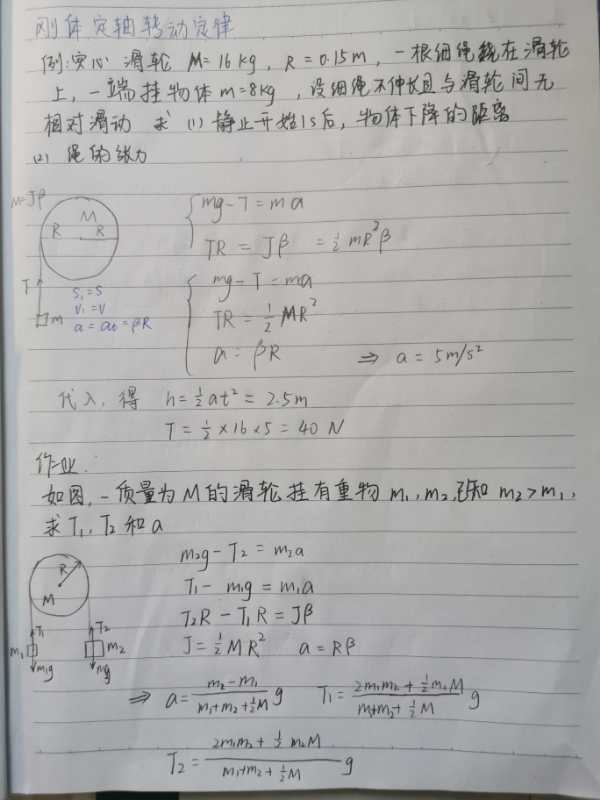 刚体定轴转动定律
例:实心滑轮 M=16kg, R=0.15m, 一根细绳绕在滑轮
上, 一端挂物体m=8kg, 设细绳不伸长且与滑轮间无
相对滑动 求 (1) 静止开始1s后, 物体下降的距离
(2) 绳的张力
M=Jβ
M
R R
T
m
S₁=S
V₁=V
a=at=βR
mg-T=ma
TR=Jβ =½mR²β
mg-T=ma
TR=½MR²
a=βR ⇒ a=5m/s²
代入, 得 h=½at²=2.5m
T=½×16×5=40N
作业.
如图, 一质量为M的滑轮挂有重物m₁, m₂, 已知m₂>m₁,
求T₁, T₂和a
R
M
T₁ T₂
m₁ m₂
m₁g
m₂g-T₂=m₂a
T₁-m₁g=m₁a
T₂R-T₁R=Jβ
J=½MR² a=Rβ
⇒ a=(m₂-m₁)/(m₁+m₂+½M) g T₁=(2m₁m₂+½m₁M)/(m₁+m₂+½M) g
T₂=(2m₁m₂+½m₂M)/(m₁+m₂+½M) g